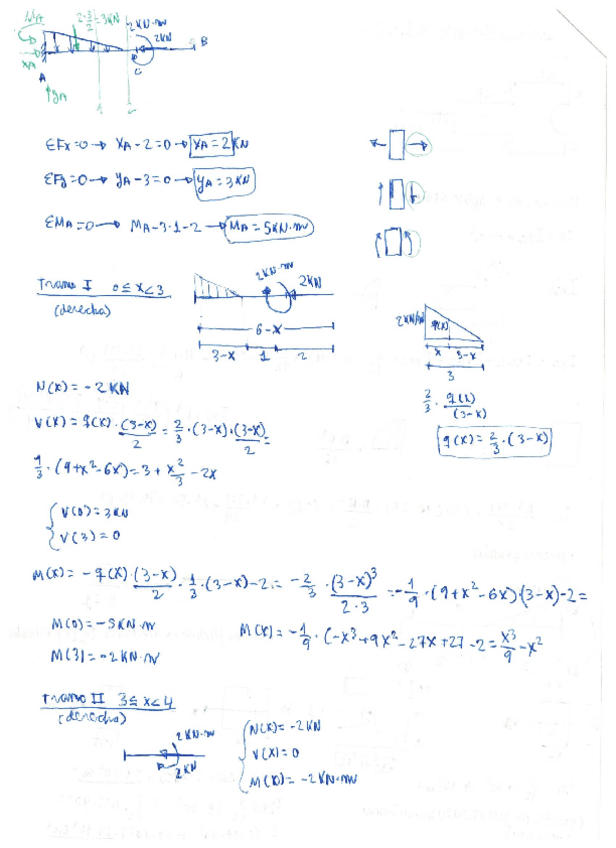 MA
2·3/2=3KN
2KN·m
2KN
B
XA
C
A
yA
ΣFx=0 → XA-2=0 → XA=2KN
ΣFy=0 → yA-3=0 → yA=3KN
ΣMA=0 → MA-3·1-2 → MA=5KN·m
Tramo I 0≤x<3
(derecha)
2KN·m
2KN
6-x
3-x 1 2
2KN/m
q(x)
x 3-x
3
2/3 · q(x)/(3-x)
q(x)=2/3·(3-x)
N(x)=-2KN
V(x)=q(x)·(3-x)/2=2/3·(3-x)·(3-x)/2=
1/3·(9+x²-6x)=3+x²/3-2x
V(0)=3KN
V(3)=0
M(x)=-q(x)·(3-x)/2·1/3·(3-x)-2=-2/3·(3-x)³/2·3=-1/9·(9+x²-6x)·(3-x)-2=
M(0)=-5KN·m
M(x)=-1/9·(-x³+9x²-27x+27-2=x³/9-x²
M(3)=-2KN·m
Tramo II 3≤x<4
(derecha)
2KN·m
2KN
N(x)=-2KN
V(x)=0
M(x)=-2KN·m